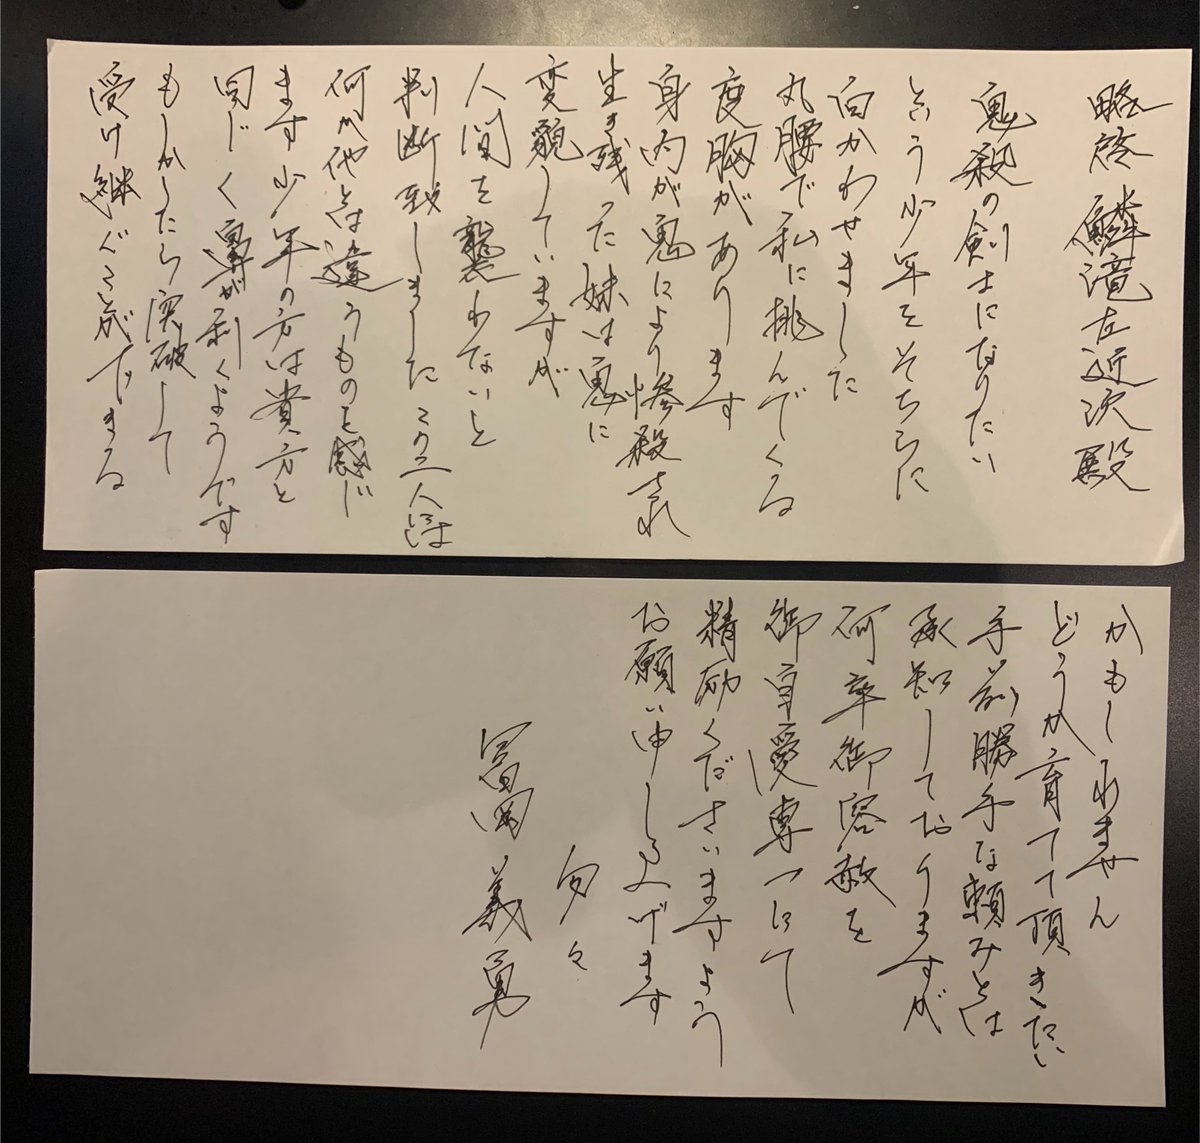 略啓 鱗滝左近次殿
鬼殺の剣士になりたい
という少年をそちらに
向かわせました
丸腰で私に挑んでくる
度胸があります
身内が鬼により惨殺され
生き残った妹は鬼に
変貌していますが
人間を襲わないと
判断致しましたこの二人には
何か他とは違うものを感じ
ます少年の方は貴方と
同じく鼻が利くようです
もしかしたら突破して
受け継ぐことができる
かもしれません
どうか育てて頂きたい
手前勝手な頼みとは
承知しておりますが
何卒御容赦を
御自愛専一にて
精励くださいますよう
お願い申し上げます
匆々
冨岡義勇